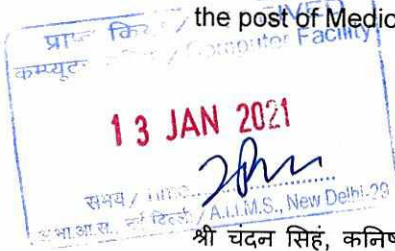 the post of Medic
प्राप्त किया / RECEIVED
कम्प्यूटर / Computer Facility
13 JAN 2021
समय /
अ.भा.आ.सं., नई दिल्ली / A.I.I.M.S., New Delhi-29
श्री चंदन सिहं, कनिष